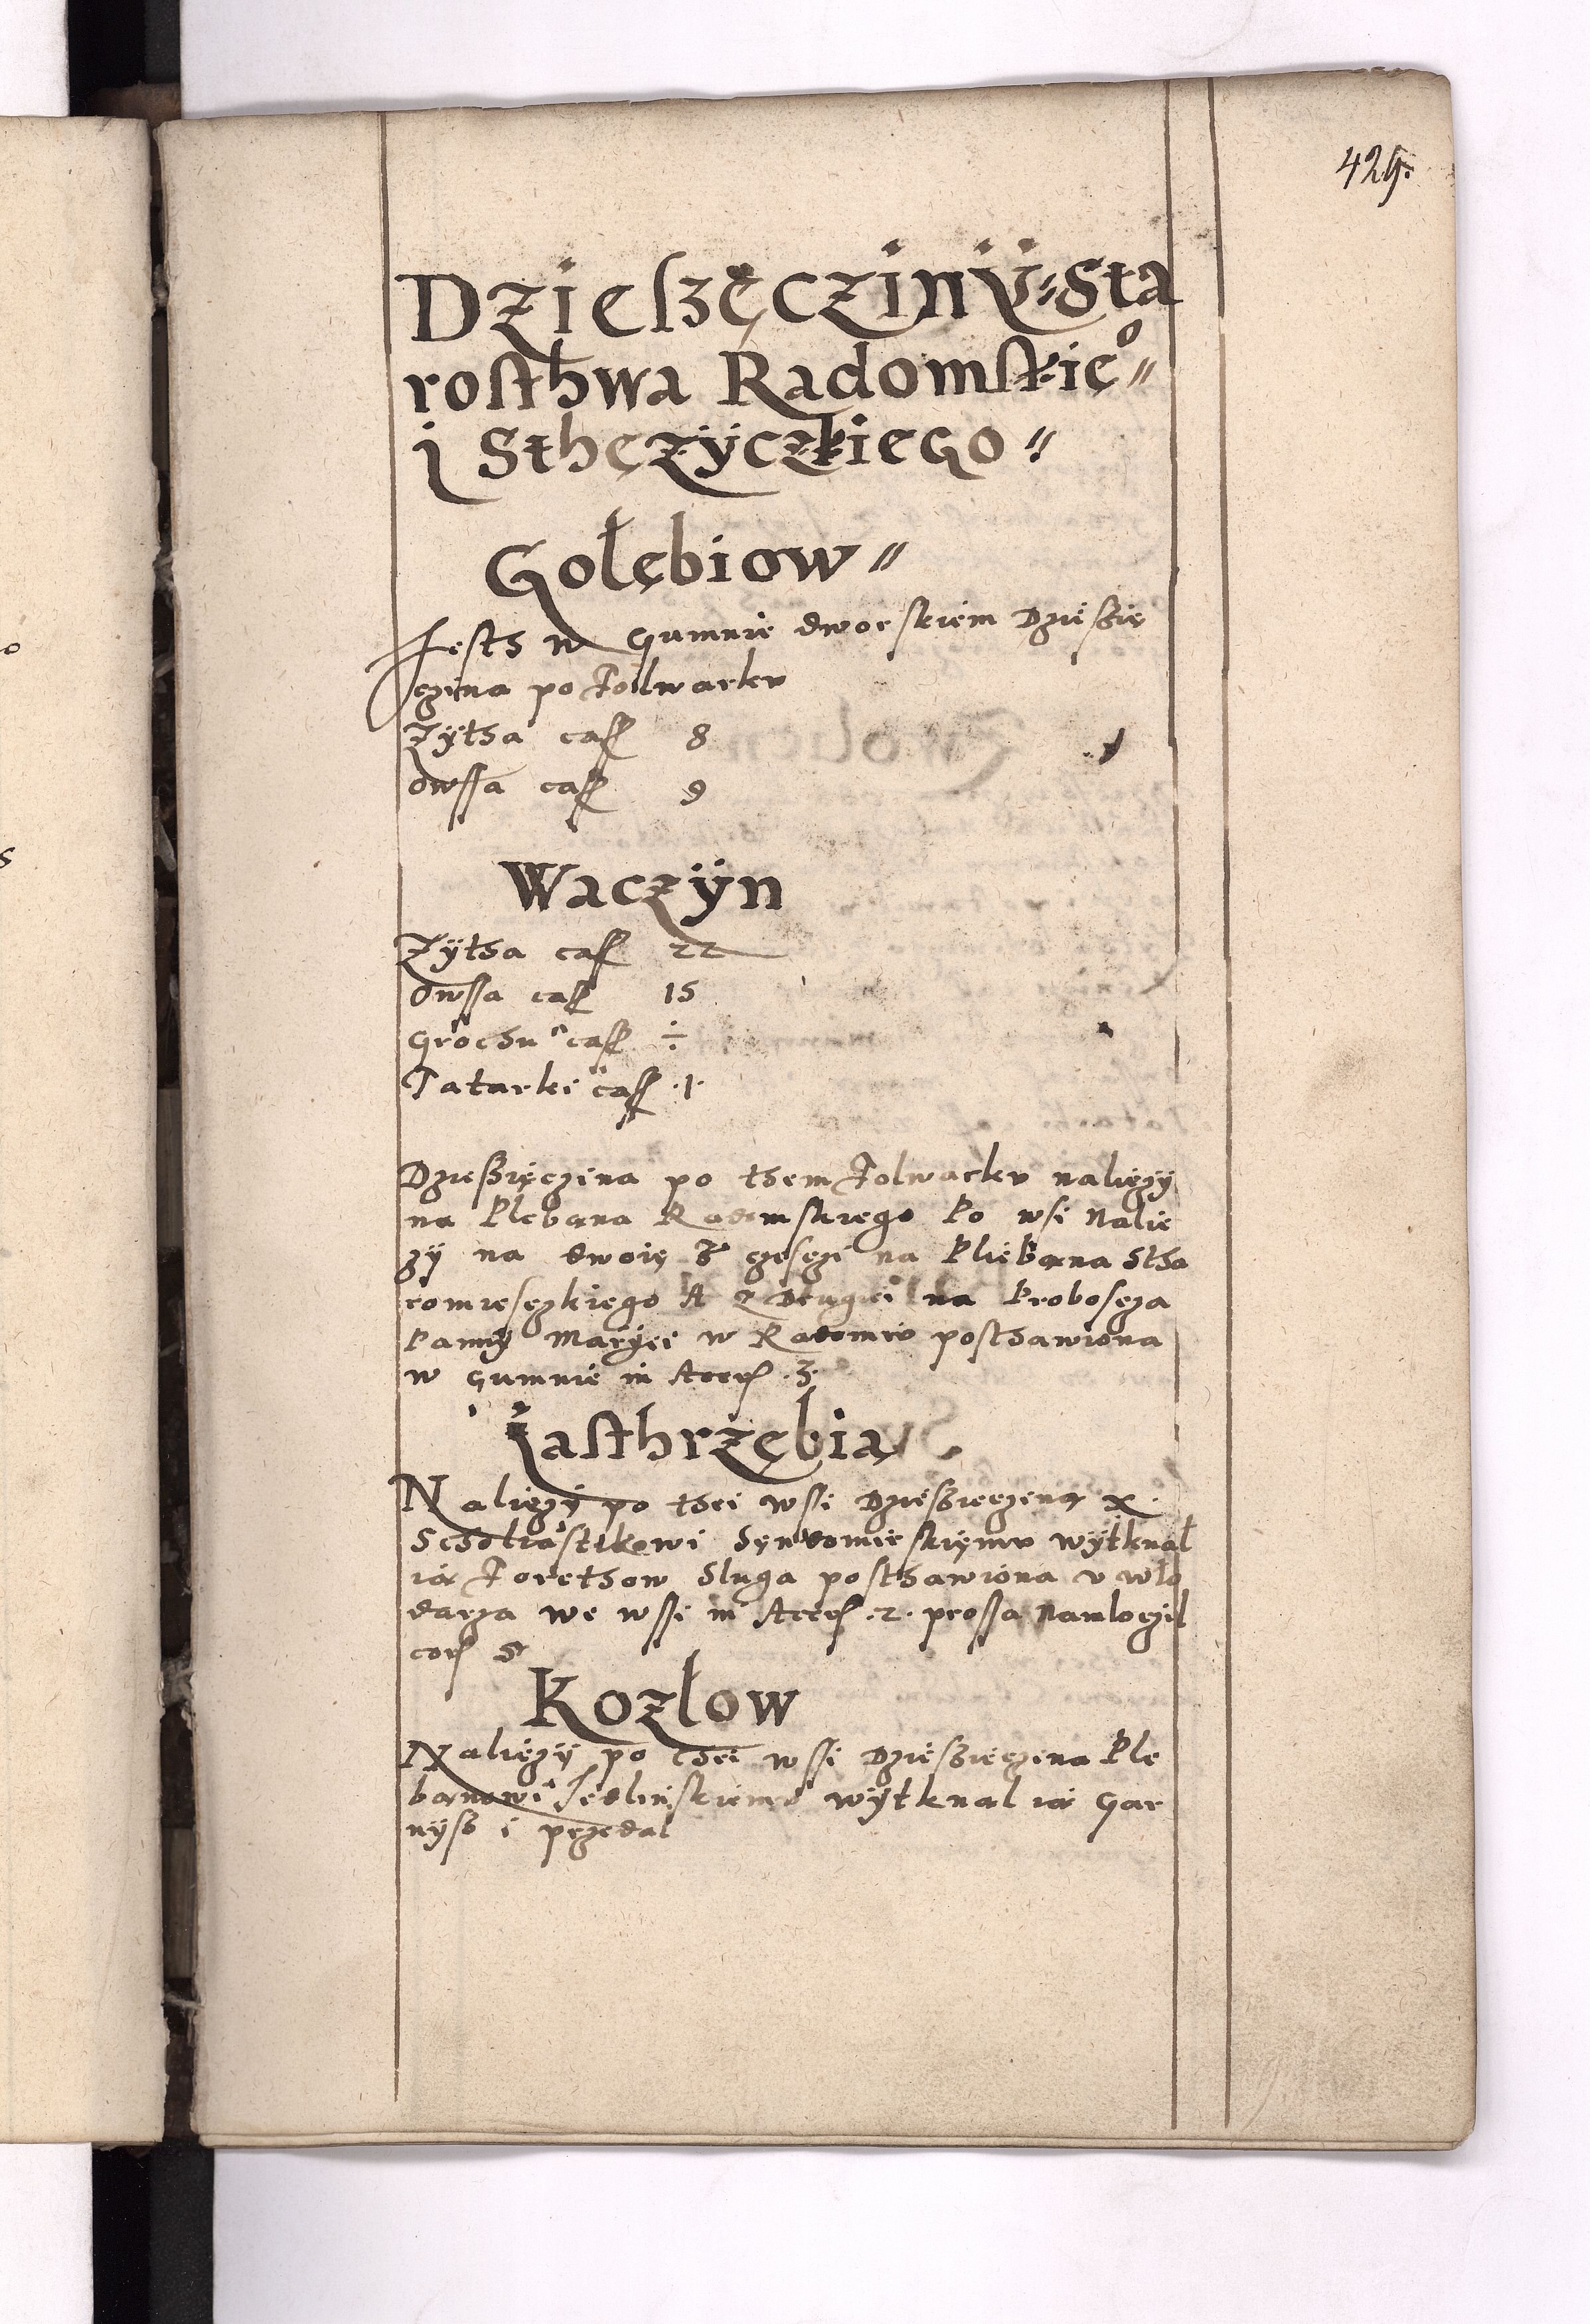 429.
Dzieſzęcziny Sta
roſthwa Radomſkie⁰
i Sthezyczkiego
Gołębiow
Jesth w Gumnie dworskiem Dzießię
czina po Folwarku
Zÿtha cas 8
Owssa cas 9
Waczÿn
Zÿtha cas 22
Owssa cas 15
Grochu cas ÷
Tatarki cas .1.
Dzießięczina po them Folwarku naliezÿ
na Plebana Radomskiego Po wsi Nalie
zÿ na dwoię Z częsczi na Pliebana Stha
romiesczkiego A z Drugiei na Proboscza
Pannÿ Mariei w Radomiu posthawiona
w Gumnie in Acer .3.
Jaſthrzębia
Naliezÿ po thei wsi Dzießięczina x.
Scholiastikowi Sendomirskiemu wÿtknął
ią Forethow Sluga posthawiona v wlo
darza we wssi in Acer .2. prossa Namloczil
cor 5
Kozłow
Naliezÿ po thei wssi Dzießięczina Ple
banowi Jedlinskiemu wÿtknal ią Gar
nÿß i przedal